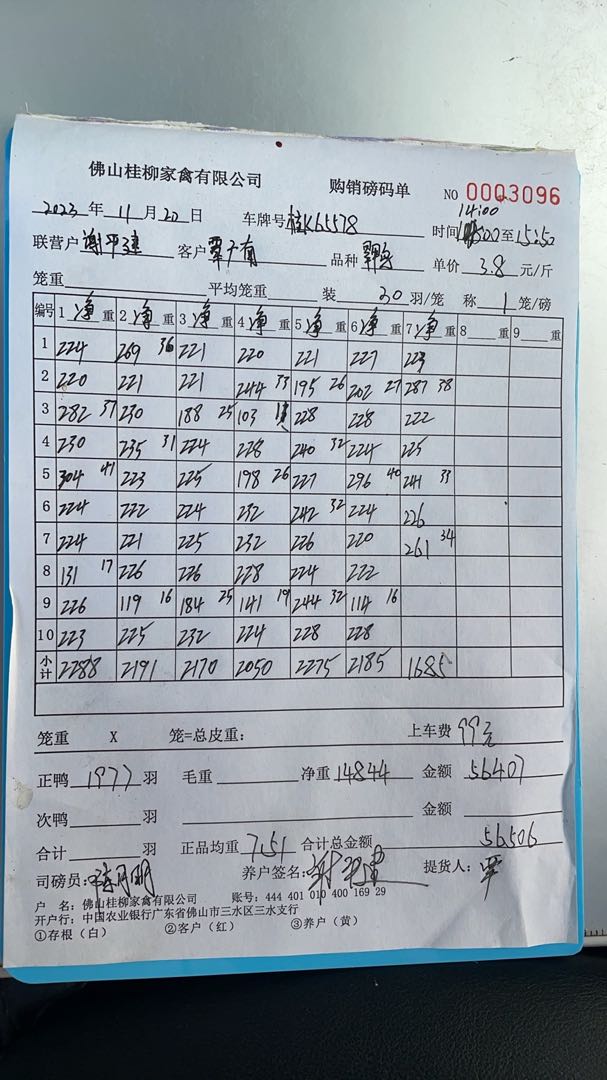 佛山桂柳家禽有限公司 购销磅码单 NO 0003096
2023 年 11 月 20 日 车牌号 桂K65578 14:00
联营户 谢平建 客户 覃广南 品种 时间 至 15:50
单价 3.8 元/斤
笼重 平均笼重 装 30 羽/笼 称 1 笼/磅
编号 1 净 重 2 净 重 3 净 重 4 净 重 5 净 重 6 净 重 7 净 重 8 重 9 重
1 224 269 36 221 220 221 227 223
2 220 221 221 244 33 195 26 202 27 287 38
3 282 37 230 188 25 103 228 228 222
4 230 235 31 224 228 240 32 224 225
5 304 41 223 225 198 26 227 296 40 241 33
6 224 222 224 232 242 32 224 226
7 224 221 225 232 226 220 261 34
8 131 17 226 226 228 224 222
9 226 119 16 184 25 141 19 244 32 114 16
10 223 225 232 224 228 228
小计 2288 2191 2170 2050 2275 2185 1685
笼重 X 笼=总皮重: 上车费 99元
正鸭 1977 羽 毛重 净重 14844 金额 56407
次鸭 羽 金额
合计 羽 正品均重 7.51 合计总金额 56506
司磅员: 养户签名: 谢平建 提货人: 覃
户 名: 佛山桂柳家禽有限公司 账号: 444 401 010 400 169 29
开户行: 中国农业银行广东省佛山市三水区三水支行
①存根(白) ②客户(红) ③养户(黄)